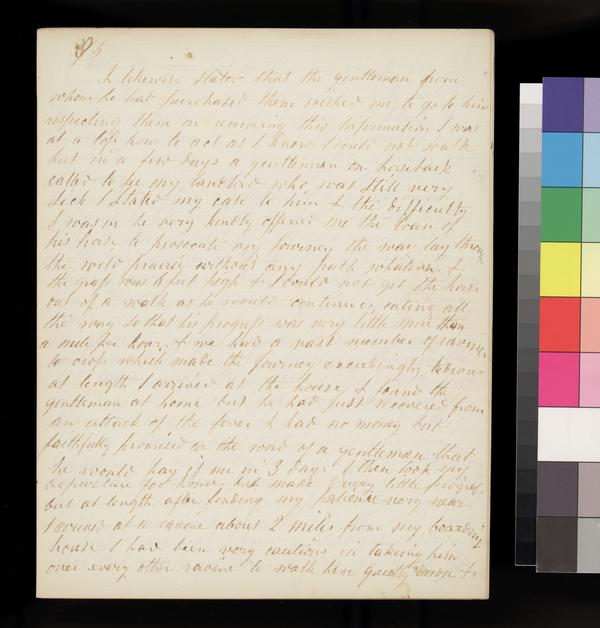 95
I likewise stated that the gentleman from
whom he had purchased them wished me to go to him
respecting them on receiving this Information I was
at a loss how to act as I knew I could not walk
but in a few days a gentleman on horseback
called to see my landlord who was still very
Sick I stated my case to him & the difficulty
I was in he very kindly offered me the loan of
his horse to prosecute my Journey the way lay throu
the wild prairie without any path whatever &
the grass was 6 feet high & I could not get the horse
out of a walk as he would continue eating all
the way so that his progress was very little more than
a mile per hour & we had a vast number of ravines
to cross which made the Journey exceedingly tedious
at length I arrived at the house I found the
gentleman at home but he had just recovered from
an attack of the fever & had no money but
faithfully promised on the word of a gentleman that
he would pay it me in 3 days I then took my
departure for home but made very little progress
but at length after lending my patience very near
I arrived at a ravine about 2 miles from my boarding
house I had been very cautious in takeing him
over every other ravine to walk him down &